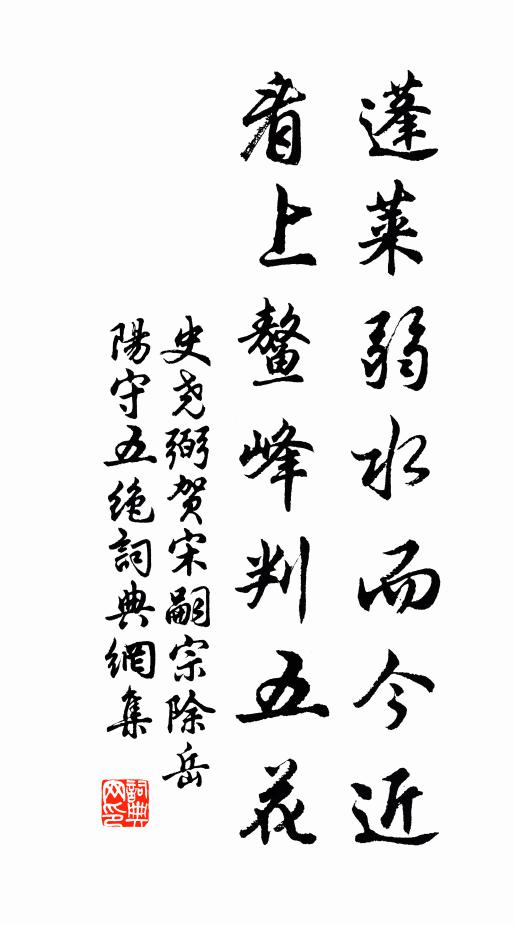 蓬萊弱水而今近
看上鰲峰判五花
史尧弼贺宋嗣宗除岳
陽守五绝詞典網集
詞典网印